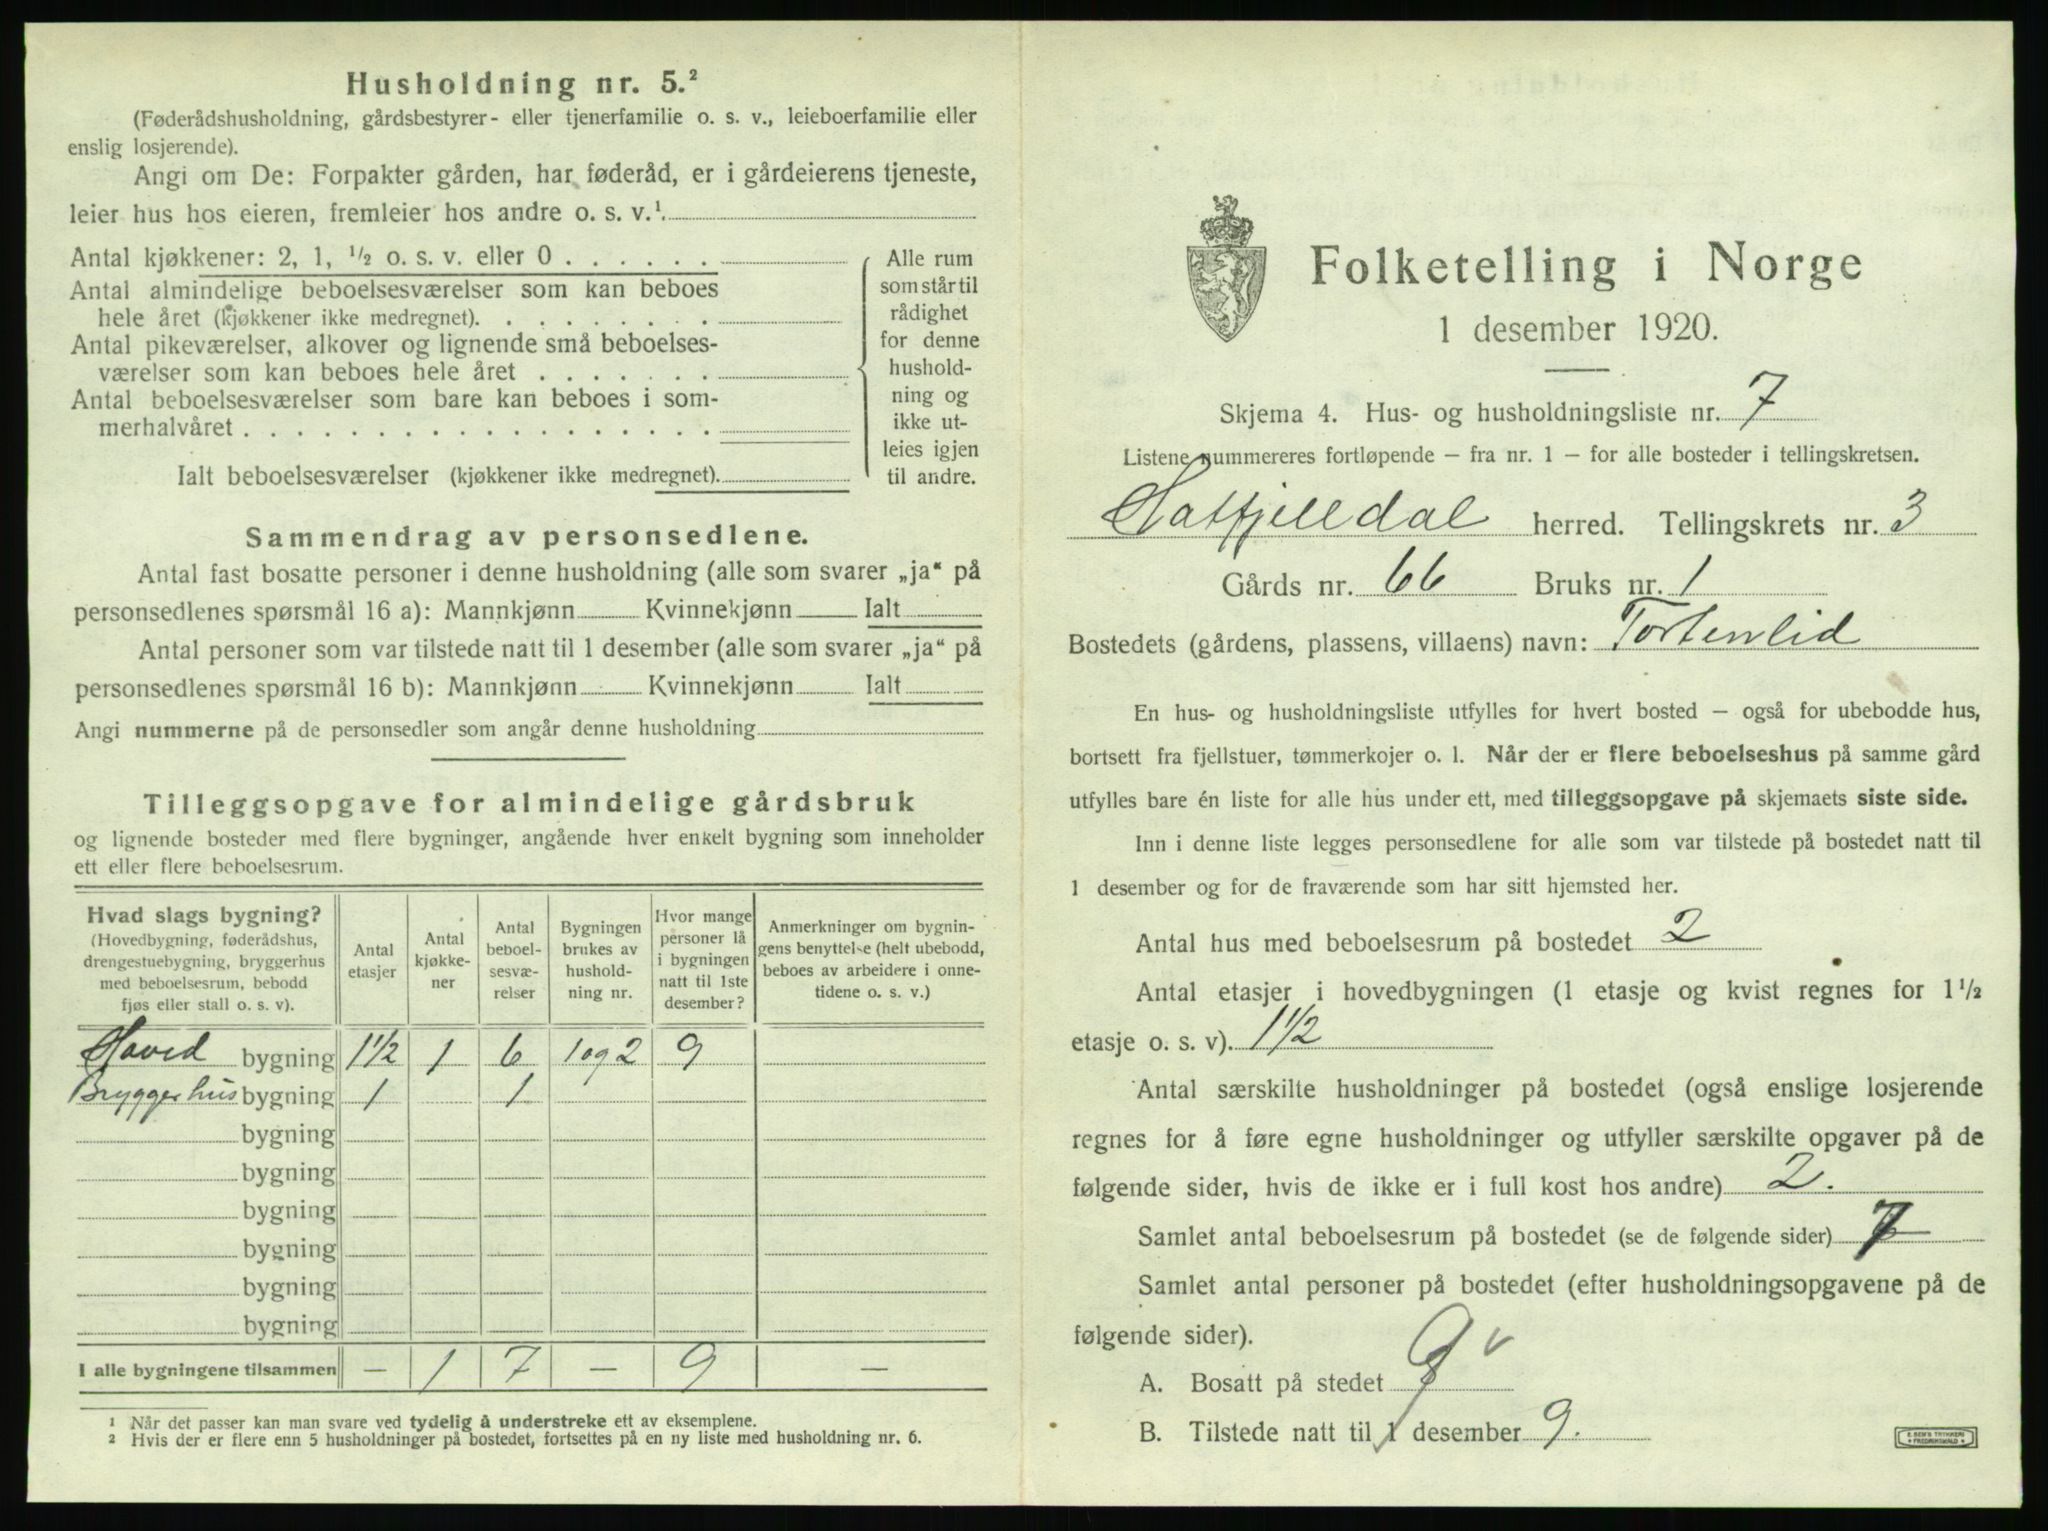 Husholdning nr. 5.²
(Føderådshusholdning, gårdsbestyrer- eller tjenerfamilie o. s. v., leieboerfamilie eller
enslig losjerende).
Angi om De: Forpakter gården, har føderåd, er i gårdeierens tjeneste,
leier hus hos eieren, fremleier hos andre o. s. v.¹
Antal kjøkkener: 2, 1, ½ o. s. v. eller 0
Antal almindelige beboelsesværelser som kan beboes
hele året (kjøkkener ikke medregnet).
Antal pikeværelser, alkover og lignende små beboelses-
værelser som kan beboes hele året
Antal beboelsesværelser som bare kan beboes i som-
merhalvåret
Ialt beboelsesværelser (kjøkkener ikke medregnet).
Alle rum
som står til
rådighet
for denne
hushold-
ning og
ikke ut-
leies igjen
til andre.
Sammendrag av personsedlene.
Antal fast bosatte personer i denne husholdning (alle som svarer „ja“ på
personsedlenes spørsmål 16 a): Mannkjønn Kvinnekjønn Ialt
Antal personer som var tilstede natt til 1 desember (alle som svarer „ja“ på
personsedlenes spørsmål 16 b): Mannkjønn Kvinnekjønn Ialt
Angi nummerne på de personsedler som angår denne husholdning
Tilleggsopgave for almindelige gårdsbruk
og lignende bosteder med flere bygninger, angående hver enkelt bygning som inneholder
ett eller flere beboelsesrum.
Hvad slags bygning?
(Hovedbygning, føderådshus,
drengestuebygning, bryggerhus
med beboelsesrum, bebodd
fjøs eller stall o. s. v).
Antal
etasjer
Antal
kjøkke-
ner
Antal
beboel-
sesvæ-
relser
Bygningen
brukes av
hushold-
ning nr.
Hvor mange
personer lå
i bygningen
natt til 1ste
desember?
Anmerkninger om bygnin-
gens benyttelse (helt ubebodd,
beboes av arbeidere i onne-
tidene o. s. v.)
Hoved bygning 1½ 1 6 1 og 2 9
Bryggerhus bygning 1 1
bygning
bygning
bygning
bygning
bygning
bygning
I alle bygningene tilsammen — 1 7 — 9 —
¹ Når det passer kan man svare ved tydelig å understreke ett av eksemplene.
² Hvis der er flere enn 5 husholdninger på bostedet, fortsettes på en ny liste med husholdning nr. 6.
Folketelling i Norge
1 desember 1920.
Skjema 4. Hus- og husholdningsliste nr. 7
Listene nummereres fortløpende – fra nr. 1 – for alle bosteder i tellingskretsen.
Hatfjelldal herred. Tellingskrets nr. 3
Gårds nr. 66 Bruks nr. 1
Bostedets (gårdens, plassens, villaens) navn: Tortenlid
En hus- og husholdningsliste utfylles for hvert bosted – også for ubebodde hus,
bortsett fra fjellstuer, tømmerkojer o. l. Når der er flere beboelseshus på samme gård
utfylles bare én liste for alle hus under ett, med tilleggsopgave på skjemaets siste side.
Inn i denne liste legges personsedlene for alle som var tilstede på bostedet natt til
1 desember og for de fraværende som har sitt hjemsted her.
Antal hus med beboelsesrum på bostedet 2
Antal etasjer i hovedbygningen (1 etasje og kvist regnes for 1½
etasje o. s. v). 1½
Antal særskilte husholdninger på bostedet (også enslige losjerende
regnes for å føre egne husholdninger og utfyller særskilte opgaver på de
følgende sider, hvis de ikke er i full kost hos andre) 2.
Samlet antal beboelsesrum på bostedet (se de følgende sider) 7
Samlet antal personer på bostedet (efter husholdningsopgavene på de
følgende sider).
A. Bosatt på stedet 9
B. Tilstede natt til 1 desember 9.